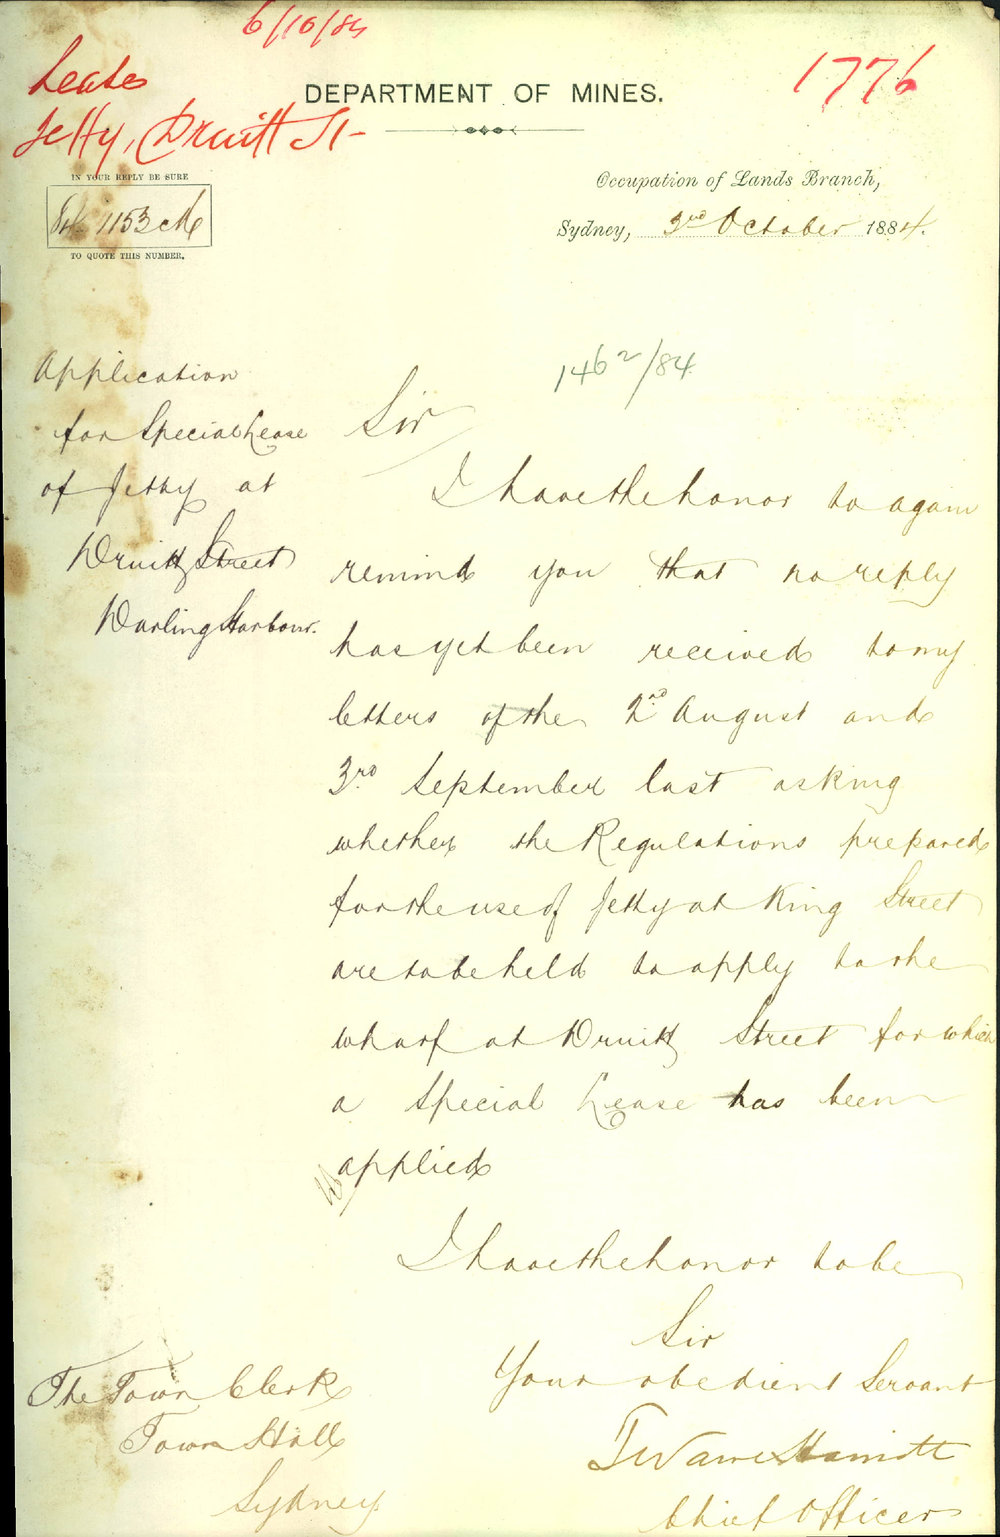 6/10/84
Lease
Jetty, Druitt St
1776
DEPARTMENT OF MINES.
IN YOUR REPLY BE SURE
1153
TO QUOTE THIS NUMBER.
Occupation of Lands Branch,
Sydney, 3rd October 1884.
1462/84
Application
for Special Lease
of Jetty at
Druitt Street
Darling Harbour.
Sir
I have the honor to again
remind you that no reply
has yet been received to my
letters of the 2nd August and
3rd September last asking
whether the Regulations prepared
for the use of Jetty at King Street
are to be held to apply to the
wharf at Druitt Street for which
a Special Lease has been
applied
I have the honor to be
Sir
Your obedient Servant
Chief Officer
The Town Clerk
Town Hall
Sydney